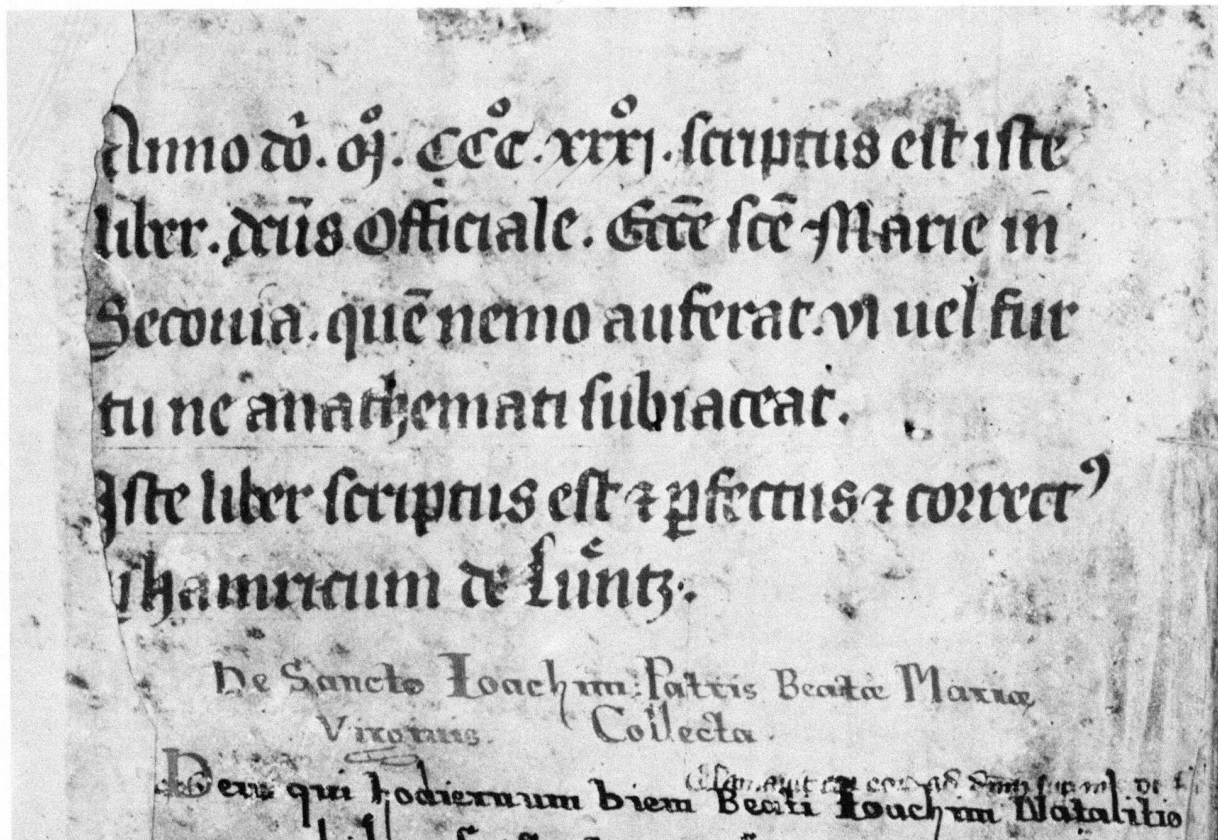 Anno dō. oͦȷ. CCͦC. xxxͦı. scriptus est iste
liber. dcūs Officiale. Eccē scē Marie in
Secouia. quē nemo auferat. vi uel fur
tu ne anathemati subiaceat.
Iste liber scriptus est ⁊ ꝑfectus ⁊ correctꝰ
hainricum de Luͤntz.
De Sancto Ioachim: Patris Beatæ Mariæ
Virginis. Collecta.
Deus qui hodiernum diem Beati Ioachim Natalitio